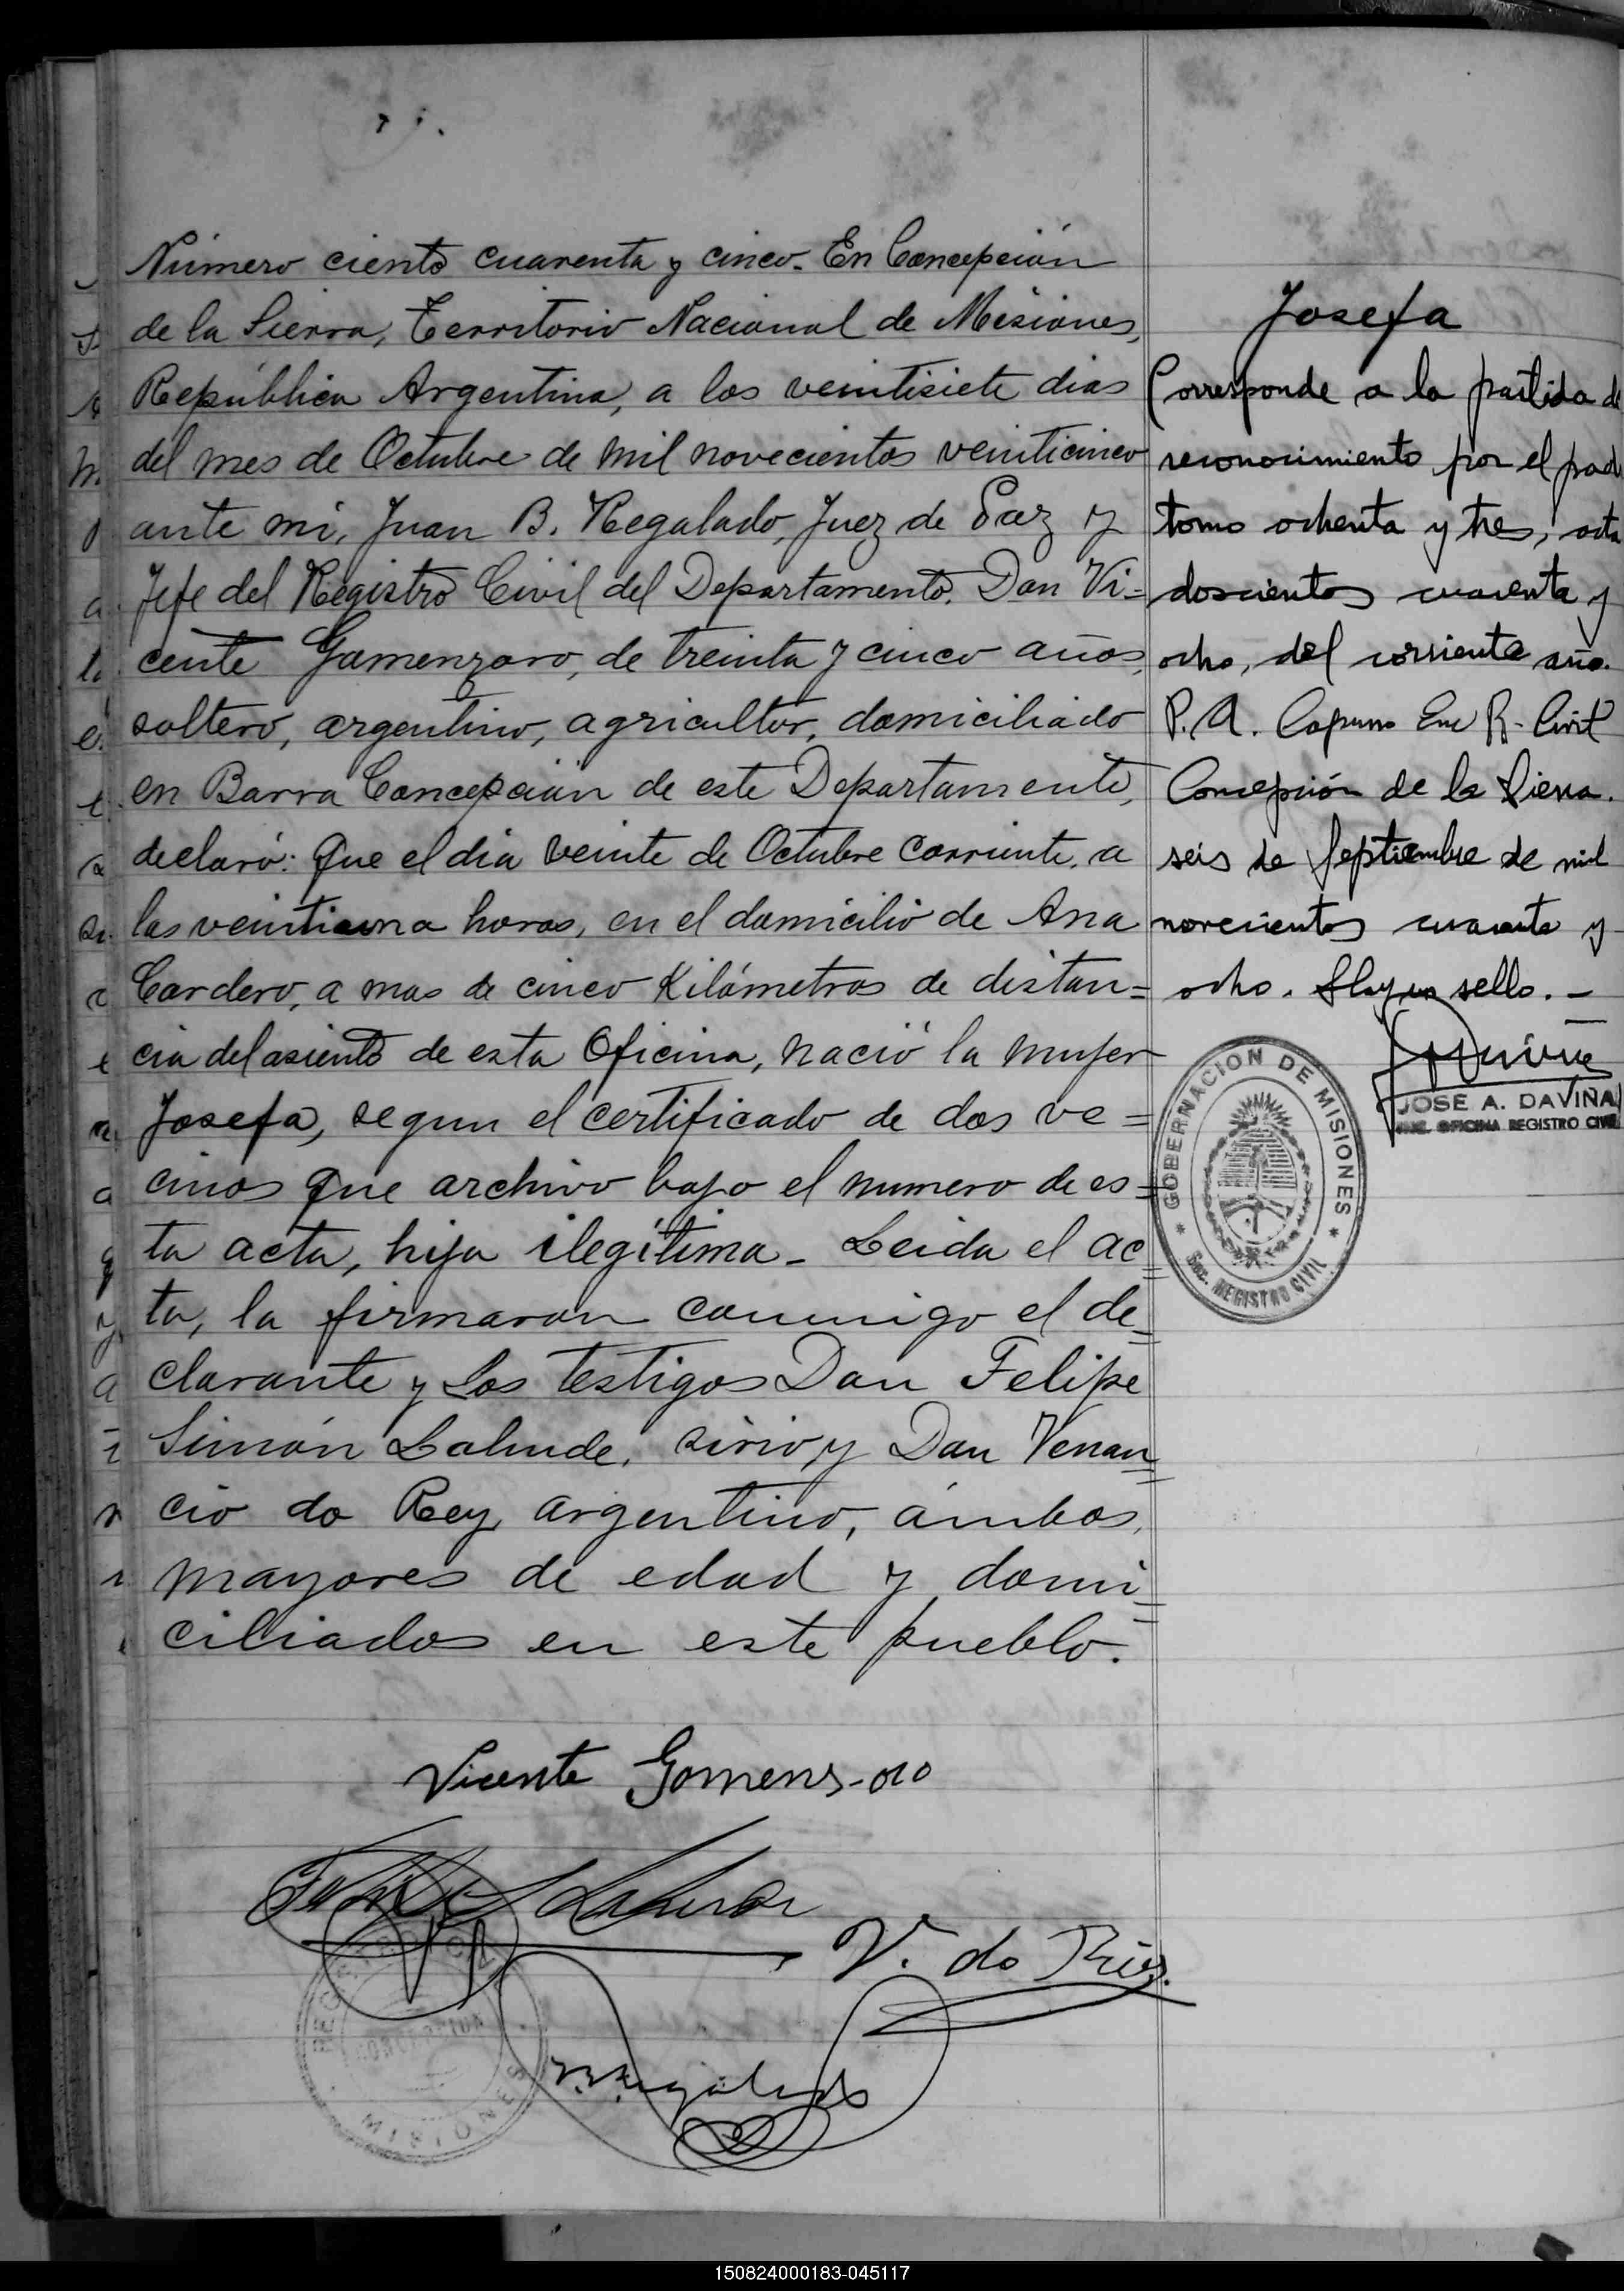 Número ciento cuarenta y cinco. En Concepción
de la Sierra, Territorio Nacional de Misiones,
República Argentina, a los veintisiete dias
del mes de Octubre de mil novecientos veinticinco
ante mi, Juan B. Regalado, Juez de Paz y
Jefe del Registro Civil del Departamento, Don Vi=
cente Gomenzoro, de treinta y cinco años,
soltero, argentino, agricultor, domiciliado
en Barra Concepción de este Departamento,
declaró: Que el dia veinte de Octubre corriente, a
las veintiuna horas, en el domicilio de Ana
Cardero, a mas de cinco Kilómetros de distan=
cia del asiento de esta Oficina, nació la mujer
Josefa, segun el certificado de dos ve=
cinos que archivo bajo el numero de es=
ta acta, hija ilegítima. Leida el ac=
ta, la firmaron conmigo el de=
clarante y los testigos Don Felipe
Simón Lahude, sirio y Don Venan=
cio do Rey, argentino, ámbos,
mayores de edad y domi=
ciliados en este pueblo.
Vicente Gomens-oro
V. do
Josefa
Corresponde a la partida de
reconocimiento por el pad
tomo ochenta y tres, acta
doscientos cuarenta y
ocho, del corriente año.
P.A. Enc R. Civil
Concepción de la Sierra.
seis de Septiembre de mil
novecientos cuarenta y
ocho. Hay un sello.-
JOSE A. DAVIÑA
ENC. OFICINA REGISTRO CIVIL
* GOBERNACION DE MISIONES *
Sec. REGISTRO CIVIL
MISIONES
150824000183-045117